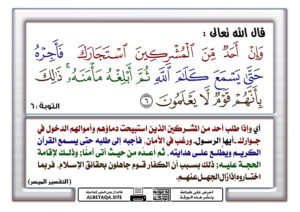 قال الله تعالى :
وَإِنْ أَحَدٌ مِّنَ الْمُشْرِكِينَ اسْتَجَارَكَ فَأَجِرْهُ
حَتَّىٰ يَسْمَعَ كَلَامَ اللَّهِ ثُمَّ أَبْلِغْهُ مَأْمَنَهُ ۚ ذَٰلِكَ
بِأَنَّهُمْ قَوْمٌ لَّا يَعْلَمُونَ ٦
التوبة : ٦
أي وإذا طلب أحد من المشركين الذين استبيحت دماؤهم وأموالهم الدخول في
جوارك -أيها الرسول- ورغب في الأمان، فأجبه إلى طلبه حتى يسمع القرآن
الكريم ويطلع على هدايته، ثم أعده من حيث أتى آمنا؛ وذلك لإقامة
الحجة عليه؛ ذلك بسبب أن الكفار قوم جاهلون بحقائق الإسلام، فربما
اختاروه إذا زال الجهل عنهم.
( التفسير الميسر )
ALBETAQA.SITE
احرص على طباعة
ونشر هذه البوكة